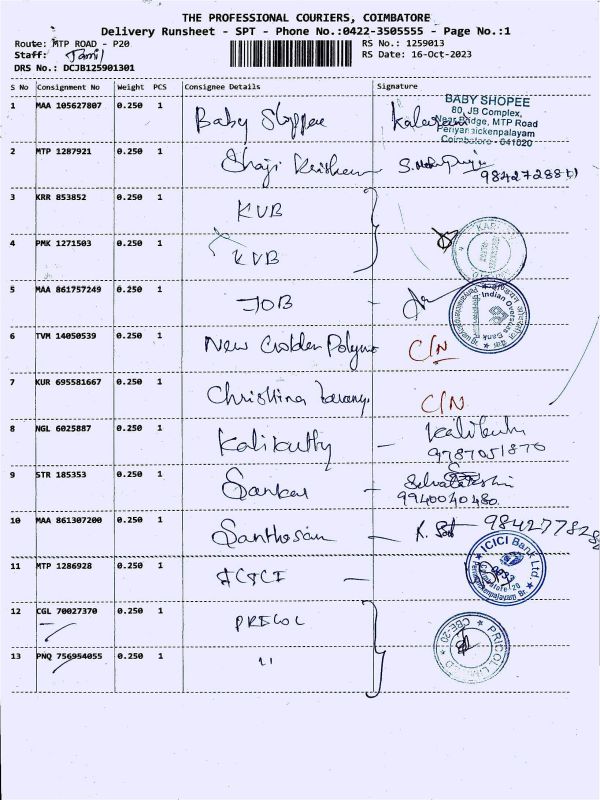 THE PROFESSIONAL COURIERS, COIMBATORE
Delivery Runsheet - SPT - Phone No.:0422-3505555 - Page No.:1
Route: MTP ROAD - P20
RS No.: 1259013
Staff: Tamil
RS Date: 16-Oct-2023
DRS No.: DCJB125901301
S No Consignment No Weight PCS Consignee Details Signature
1 MAA 105627807 0.250 1 Baby Shoppee
BABY SHOPEE
80, JB Complex,
Near Bridge, MTP Road
Periyanaickenpalayam
Coimbatore - 641020
2 MTP 1287921 0.250 1 Shaji
3 KRR 853852 0.250 1 KVB
4 PMK 1271503 0.250 1 KVB
5 MAA 861757249 0.250 1 IOB
Indian Overseas Bank
6 TVM 14050539 0.250 1 New Golden Polymo C/N
7 KUR 695581667 0.250 1 Christina C/N
8 NGL 6025887 0.250 1 Kalikutty - Kalikutty
9787051870
9 STR 185353 0.250 1 Sankar -
9940040480
10 MAA 861307200 0.250 1 Santhosam - 9842778282
11 MTP 1286928 0.250 1 ICICI -
ICICI Bank Ltd.
12 CGL 70027370 0.250 1 PRICOL
PRICOL LIMITED
CBE-20
13 PNQ 756954055 0.250 1 "